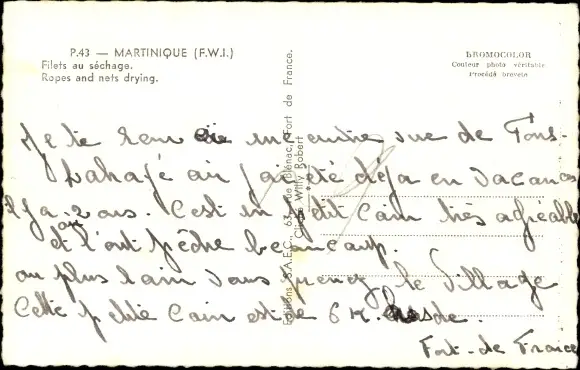 P.43 — MARTINIQUE (F.W.I.)
Filets au séchage.
Ropes and nets drying.
BROMOCOLOR
Couleur photo véritable
Procédé breveté
Editions S.A.E.C., 63, rue Blénac, Fort de France.
Cliché Willy Robert
Je te une entre vue de Fons-
où j'ai été déja en vacances
il y a 2 ans. C'est un petit Coin très agréable
et où l'ont pêche beaucoup.
au plus loin vous le Village
Cette petite Coin est de 6 K.
Fort-de France